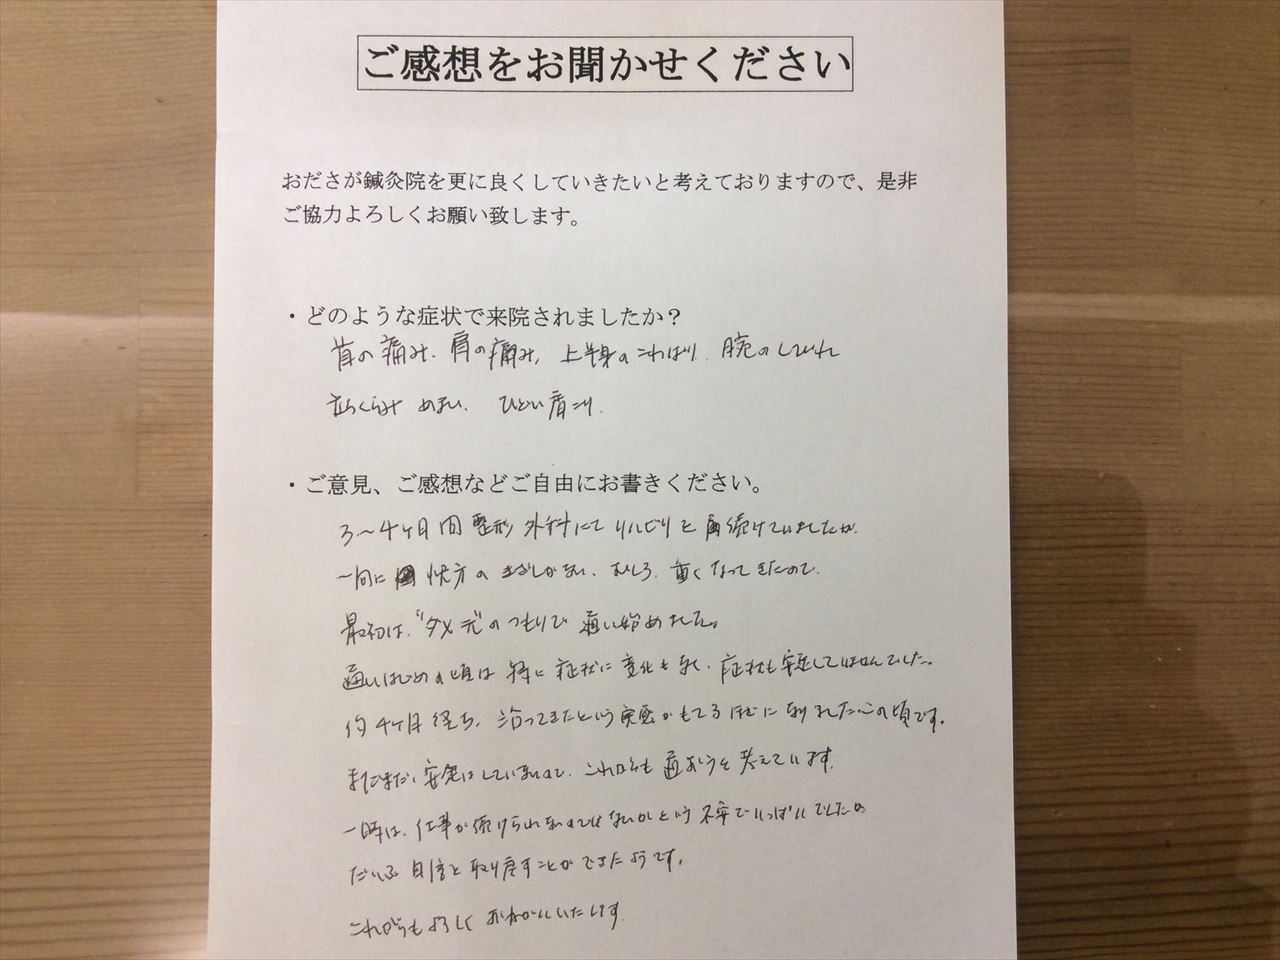 ご感想をお聞かせください
おださが鍼灸院を更に良くしていきたいと考えておりますので、是非
ご協力よろしくお願い致します。
・どのような症状で来院されましたか？
首の痛み、肩の痛み、上半身のこわばり、腕のしびれ
立ちくらみ めまい、ひどい肩こり、
・ご意見、ご感想などご自由にお書きください。
3〜4ヶ月間 整形外科にて リハビリを 続けていましたが、
一向に 快方の きざしがない、むしろ、重くなってきたので、
最初は、"ダメ元"のつもりで 通い始めました。
通いはじめの頃は 特に 症状に 変化もなく、症状も安定していませんでした。
約4ヶ月 経ち、治ってきたという実感がもてるほどになりました、この頃です。
まだまだ、安定はしていないので、これからも 通おうと 考えています。
一時は、仕事が続けられないのではないかという 不安でいっぱいでしたが
だいぶ 自信を 取り戻すことが できたようです。
これからも よろしく おねがいいたします。